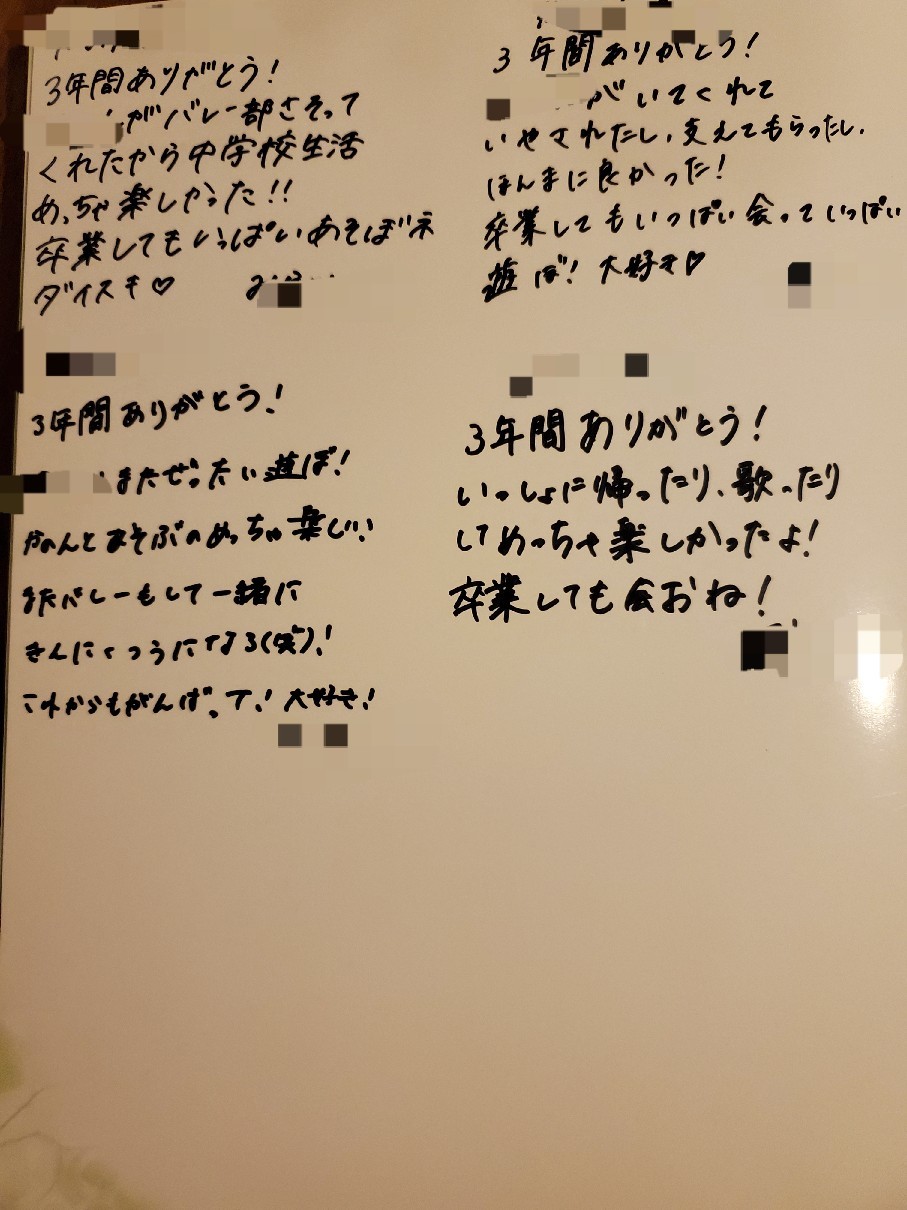 3年間ありがとう!
がバレー部さそって
くれたから中学校生活
めっちゃ楽しかった!!
卒業してもいっぱいあそぼネ
ダイスキ♡
3年間ありがとう!
がいてくれて
いやされたし、支えてもらったし、
ほんまに良かった!
卒業してもいっぱい会っていっぱい
遊ぼ! 大好き♡
3年間ありがとう!
またぜったい遊ぼ!
かのんとあそぶのめっちゃ楽しい!
またバレーもして一緒に
きんにくつうになろ(笑)!
これからもがんばって! 大好き!
3年間ありがとう!
いっしょに帰ったり、歌ったり
してめっちゃ楽しかったよ!
卒業しても会おね!